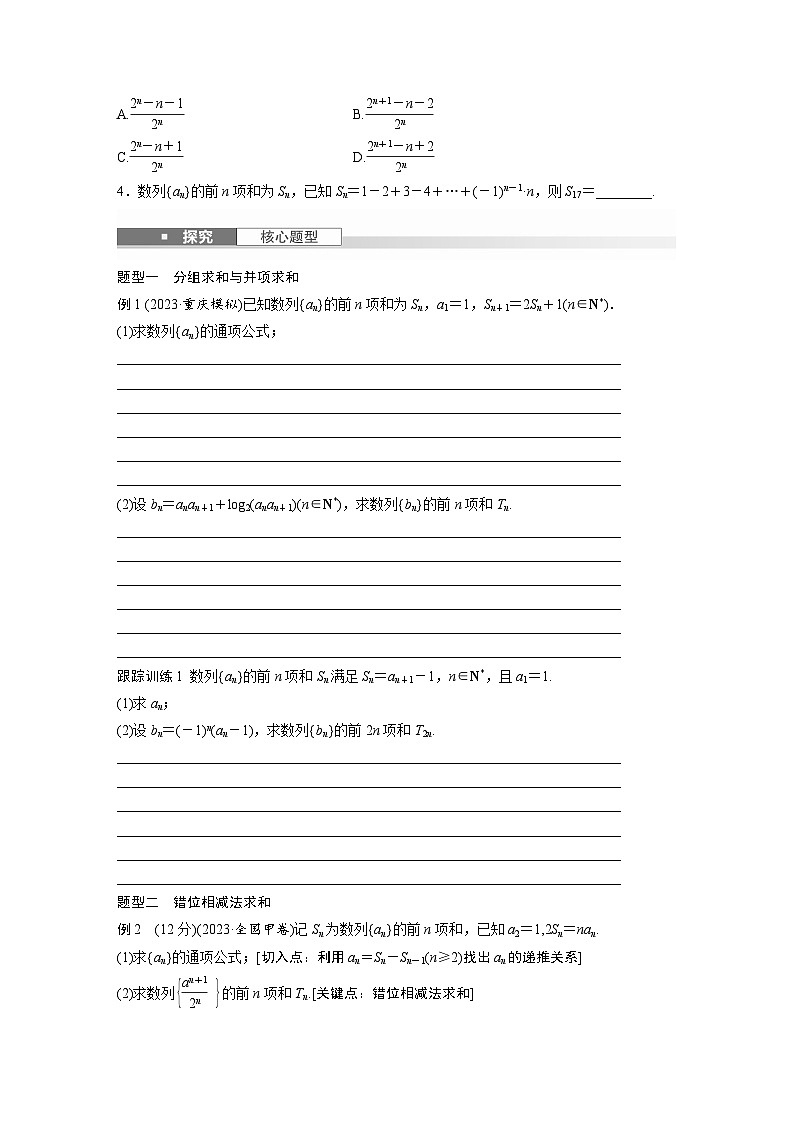 A.(2ⁿ－n－1)/2ⁿ B.(2ⁿ⁺¹－n－2)/2ⁿ
C.(2ⁿ－n＋1)/2ⁿ D.(2ⁿ⁺¹－n＋2)/2ⁿ
4．数列{aₙ}的前n项和为Sₙ，已知Sₙ＝1－2＋3－4＋…＋(－1)ⁿ⁻¹·n，则S₁₇＝________.
探究 核心题型
题型一　分组求和与并项求和
例1 (2023·重庆模拟)已知数列{aₙ}的前n项和为Sₙ，a₁＝1，Sₙ₊₁＝2Sₙ＋1(n∈N*)．
(1)求数列{aₙ}的通项公式；
(2)设bₙ＝aₙaₙ₊₁＋log₂(aₙaₙ₊₁)(n∈N*)，求数列{bₙ}的前n项和Tₙ.
跟踪训练1 数列{aₙ}的前n项和Sₙ满足Sₙ＝aₙ₊₁－1，n∈N*，且a₁＝1.
(1)求aₙ；
(2)设bₙ＝(－1)ⁿ(aₙ－1)，求数列{bₙ}的前2n项和T₂ₙ.
题型二　错位相减法求和
例2　(12分)(2023·全国甲卷)记Sₙ为数列{aₙ}的前n项和，已知a₂＝1,2Sₙ＝naₙ.
(1)求{aₙ}的通项公式；[切入点：利用aₙ＝Sₙ－Sₙ₋₁(n≥2)找出aₙ的递推关系]
(2)求数列{aⁿ⁺¹/2ⁿ}的前n项和Tₙ.[关键点：错位相减法求和]